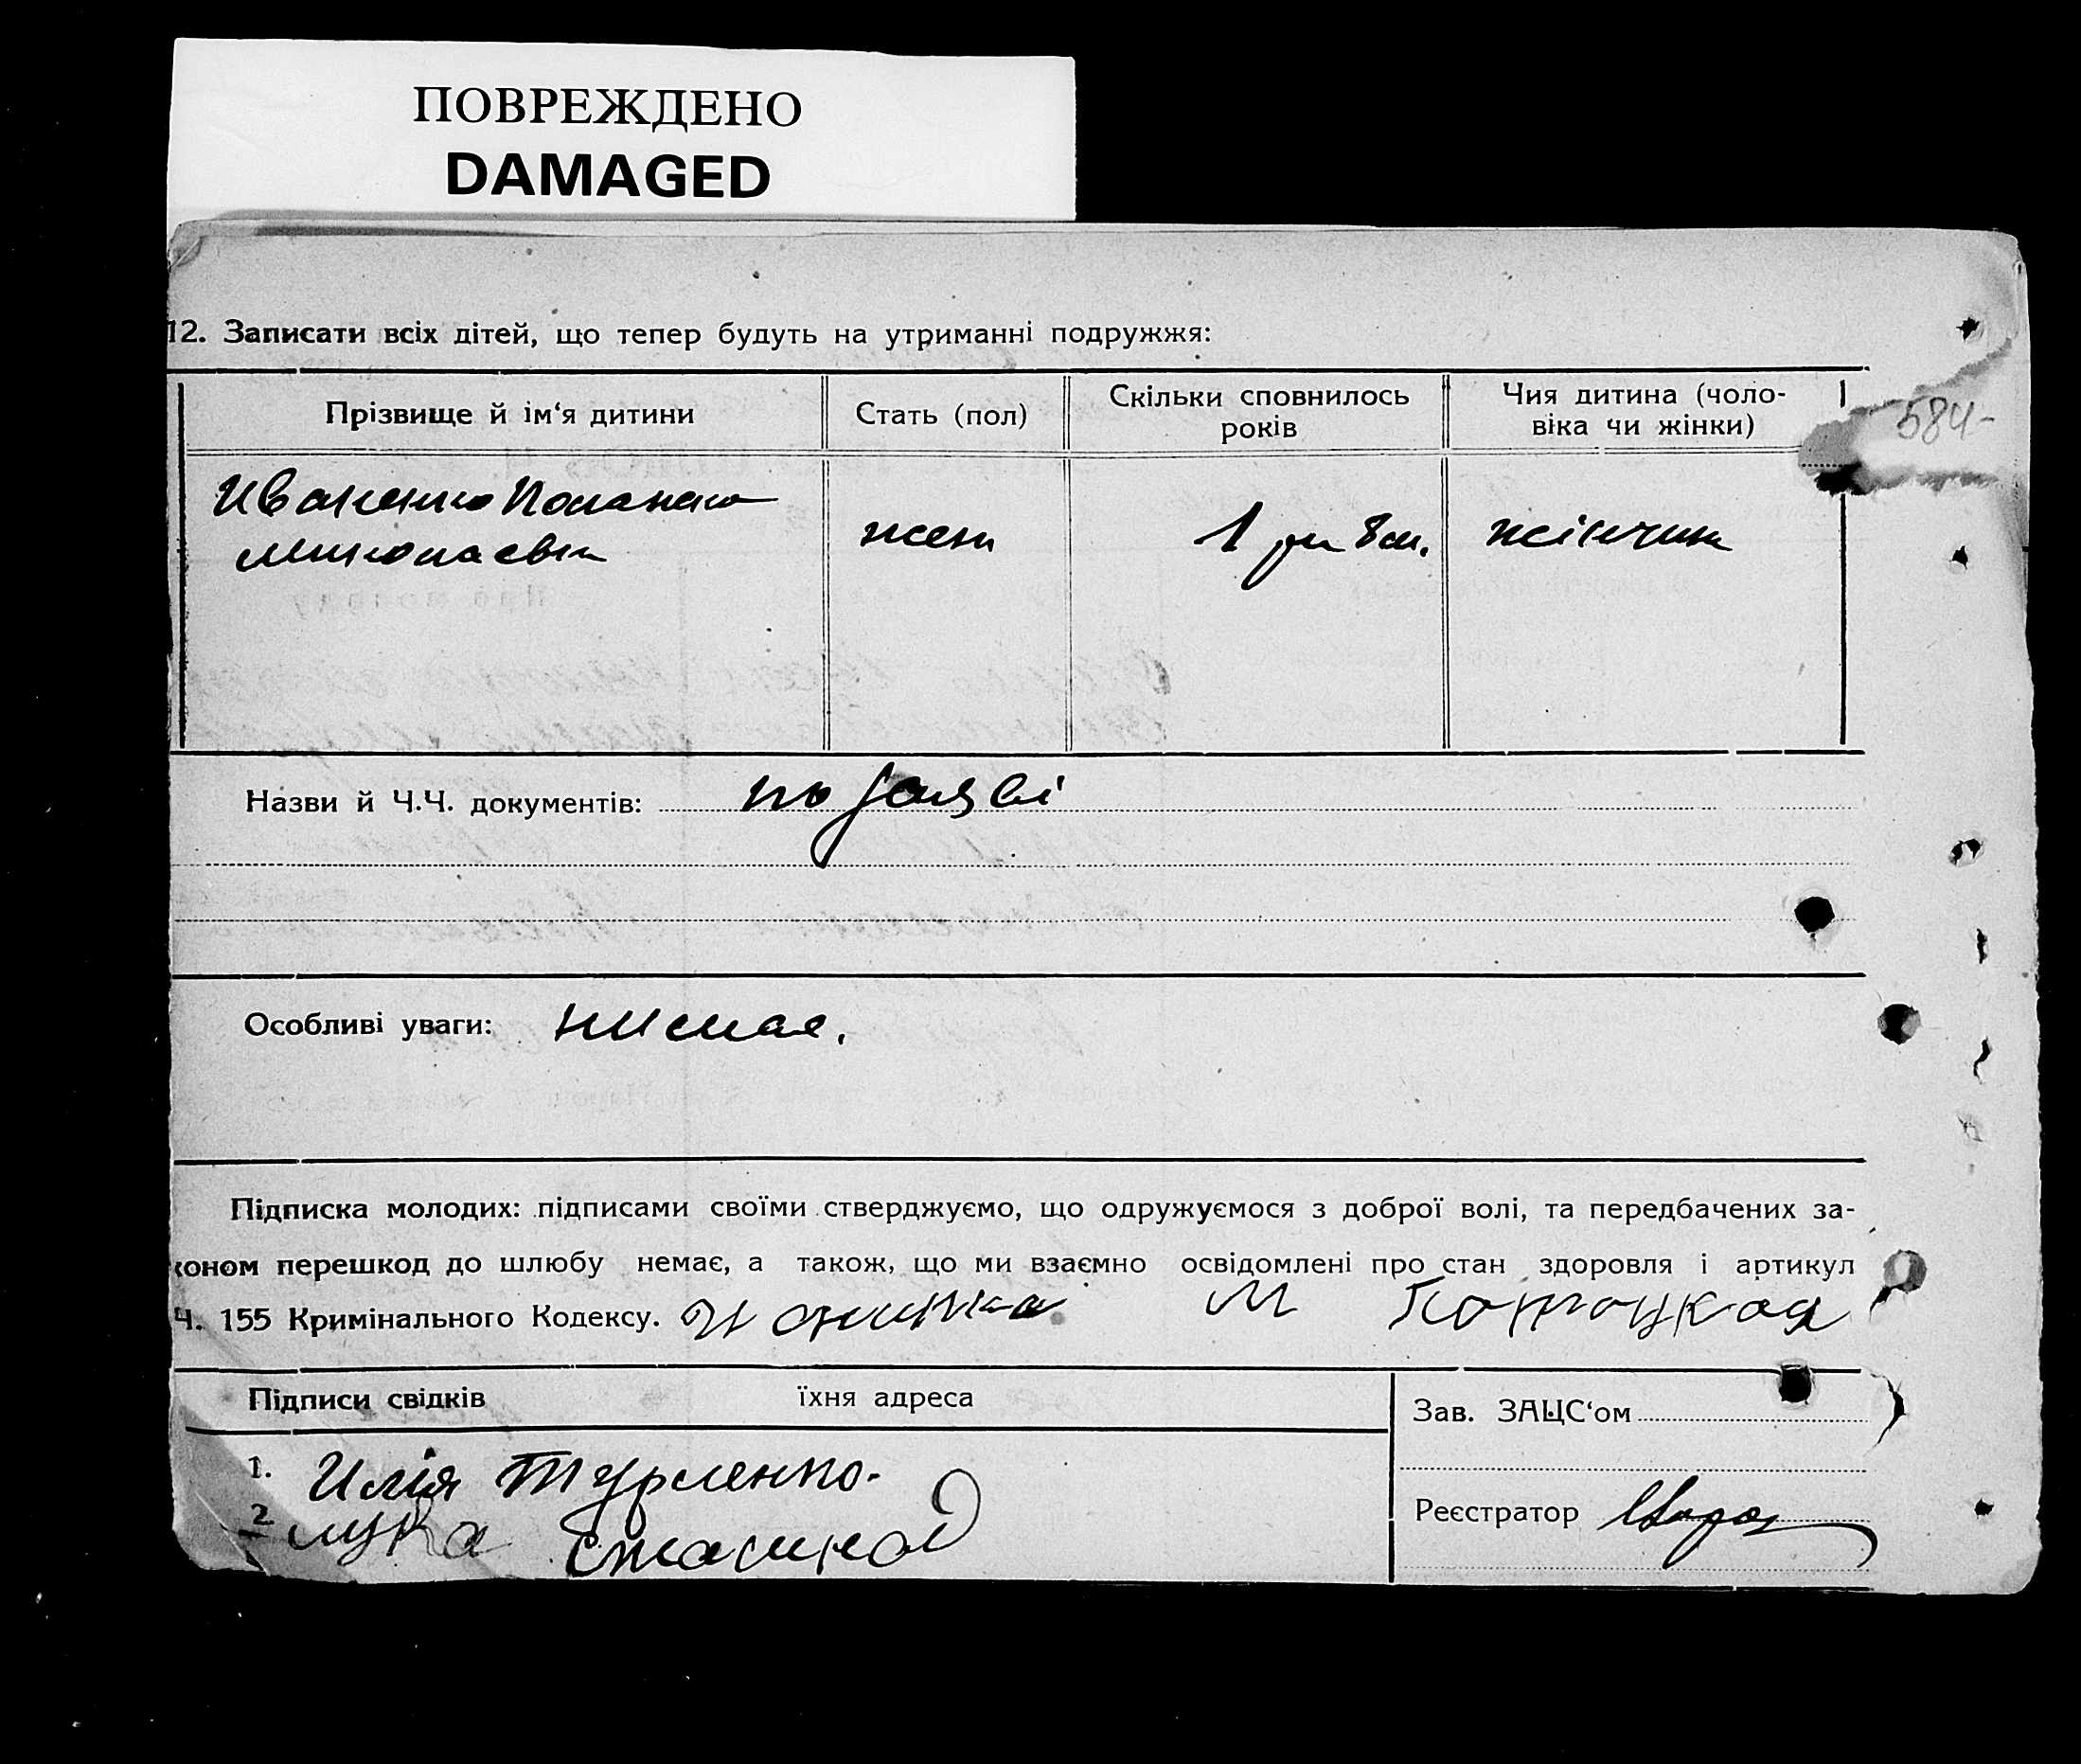 ПОВРЕЖДЕНО
DAMAGED
12. Записати всіх дітей, що тепер будуть на утриманні подружжя:
Прізвище й ім‘я дитини
Стать (пол)
Скільки сповнилось
років
Чия дитина (чоло-
віка чи жінки)
584-
Иваненко
Миколаевна
жен
1 рік 8 м.
жінчина
Назви й Ч.Ч. документів: по заяві
Особливі уваги: нимае.
Підписка молодих: підписами своїми стверджуємо, що одружуємося з доброї волі, та передбачених за-
коном перешкод до шлюбу немає, а також, що ми взаємно освідомлені про стан здоровля і артикул
Ч. 155 Кримінального Кодексу. М
Підписи свідків
їхня адреса
Зав. ЗАЦС‘ом
1. Илія
2 лука
Реєстратор